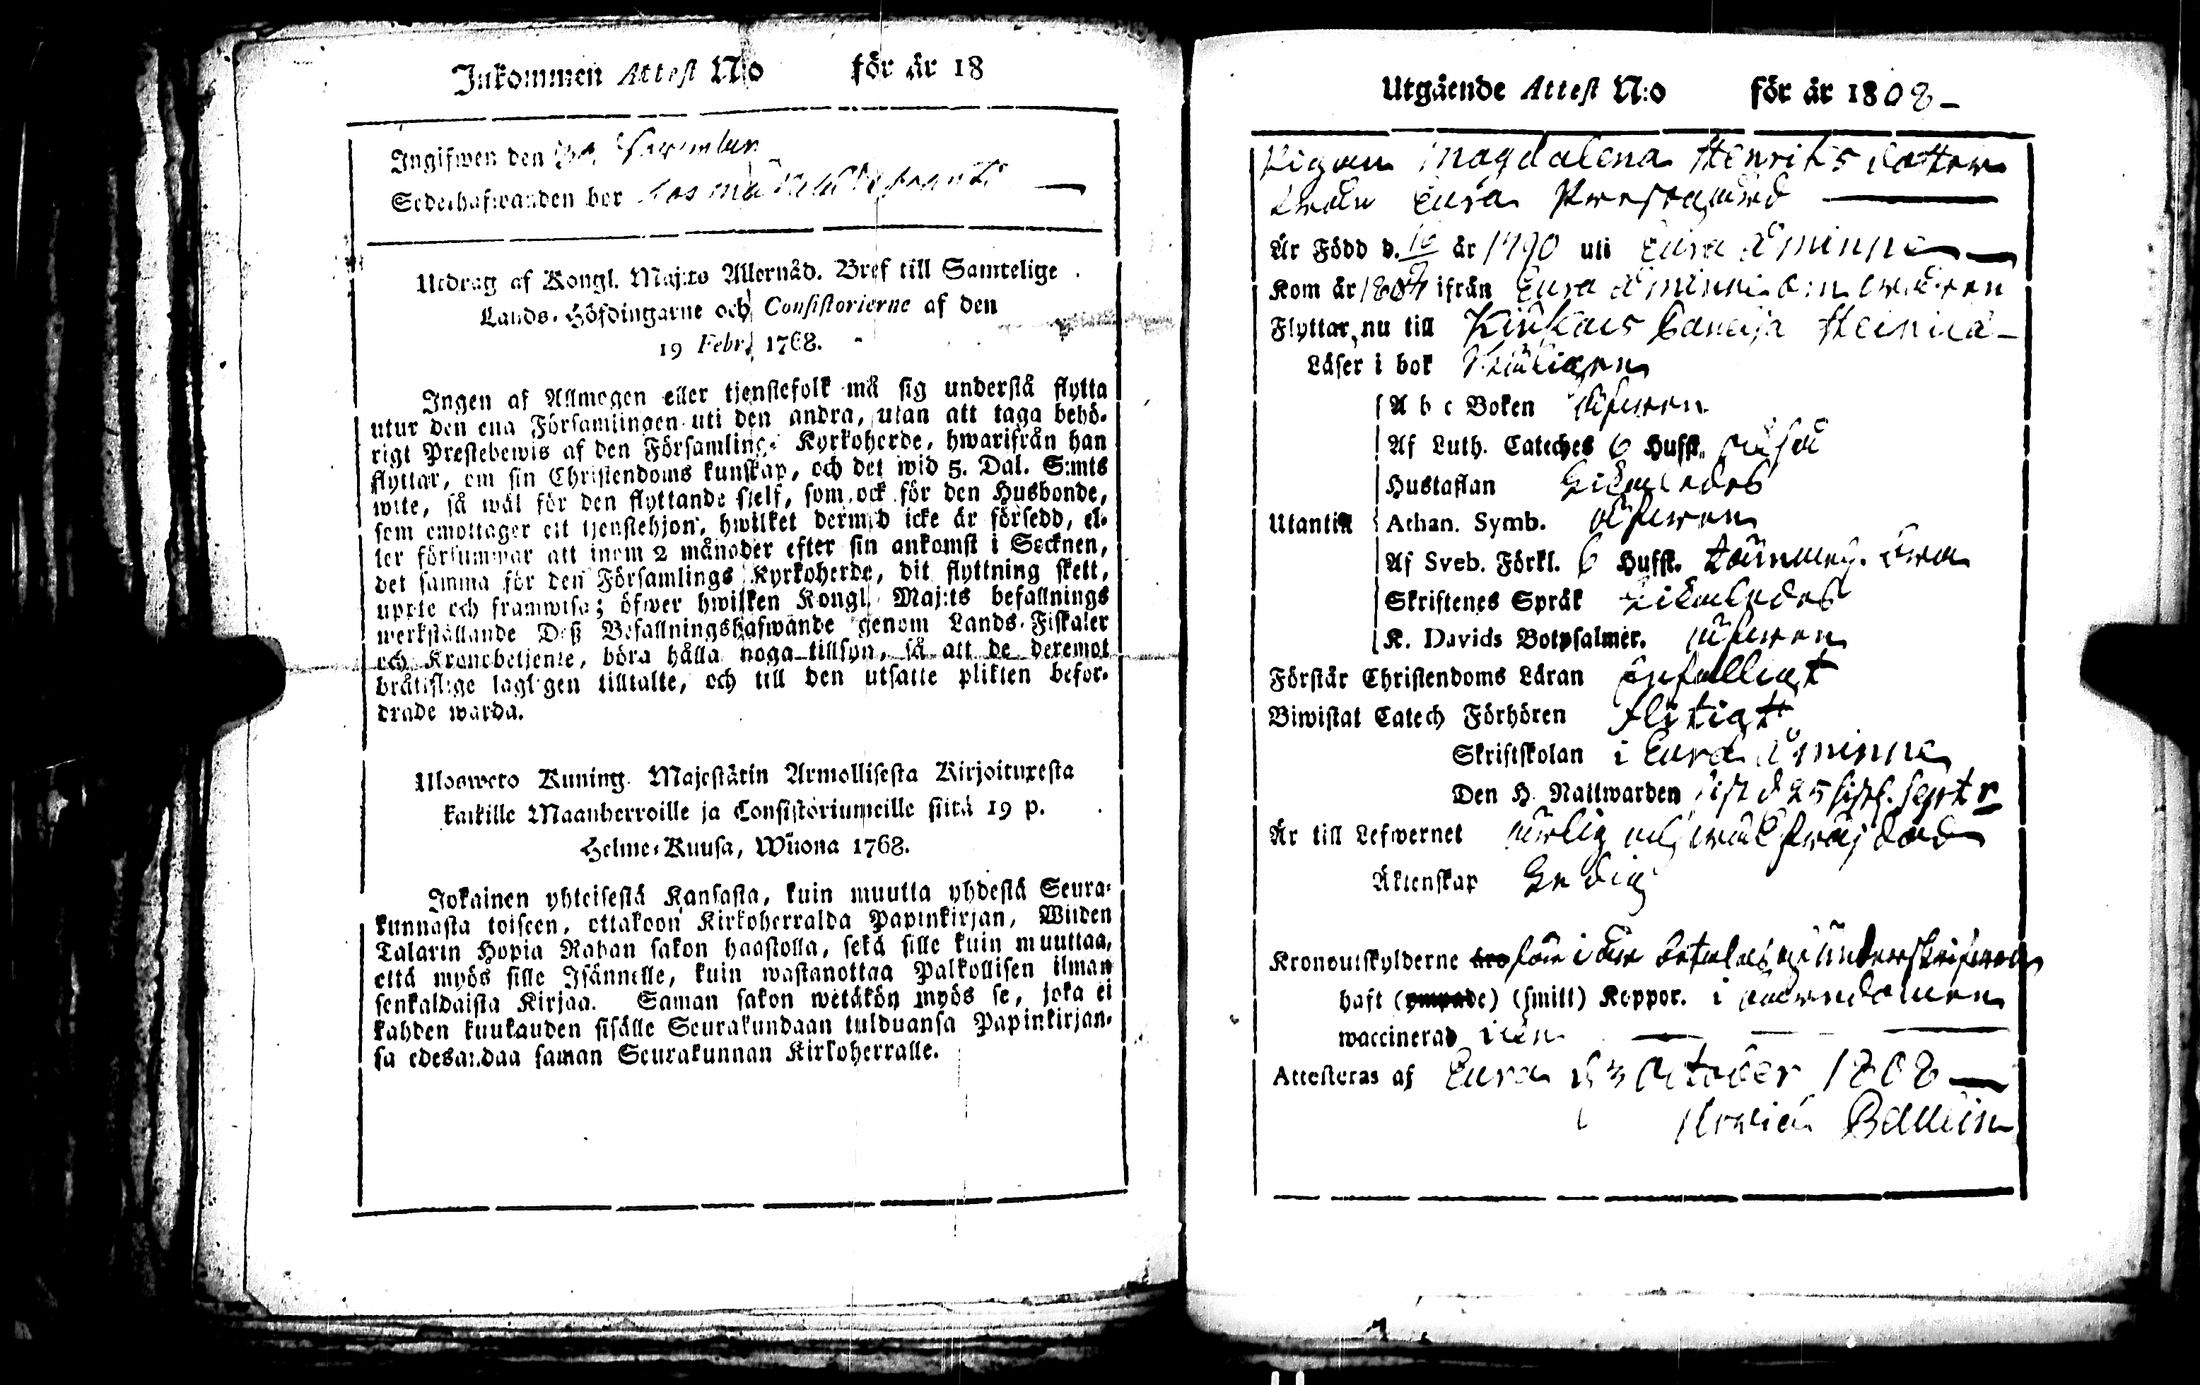 Inkommen Attest N:o för år 18
Ingifwen den November
Sederhafwanden bor hos
Utdrag af Kongl. Maj:ts Allernåd. Bref till Samtelige
Lands-Höfdingarne och Consistorierne af den
19 Febr. 1768.
Ingen af Allmogen eller tjenstefolk må sig understå flytta
utur den ena Församlingen uti den andra, utan att taga behö-
rigt Prestebewis af den Församlings Kyrkoherde, hwarifrån han
flyttar, om sin Christendoms kunskap, och det wid 5. Dal. S:mts
wite, så wäl för den flyttande sjelf, som ock för den Husbonde,
som emottager ett tjenstehjon, hwilket dermed icke är försedd, el-
ler försummar att inom 2 månader efter sin ankomst i Socknen,
det samma för den Församlings Kyrkoherde, dit flyttning skett,
uppte och framwisa; öfwer hwilken Kongl. Maj:ts befallnings
werkställande Deß Befallningshafwande genom Lands-Fiskaler
och Kronobetjente, böra hålla noga tillsyn, så att de deremot
bråttslige lagligen tilltalte, och till den utsatte plikten befor-
drade warda.
Ulosweto Kuning. Majestätin Armollisesta Kirjoituxesta
kaikille Maanherroille ja Consistoriumeille siitä 19 p.
Helme-Kuusa, Wuona 1768.
Jokainen yhteisestä Kansasta, kuin muutta yhdestä Seura-
kunnasta toiseen, ottakoon Kirkoherralda Papinkirjan, Wiiden
Talarin Hopia Rahan sakon haastolla, sekä sille kuin muuttaa,
että myös sille Isännälle, kuin wastanottaa Palkollisen ilman
senkaldaista Kirjaa. Saman sakon wetäkön myös se, joka ei
kahden kuukauden sisälle Seurakundaan tulduansa Papinkirjan-
sa edesandaa saman Seurakunnan Kirkoherralle.
Utgående Attest N:o för år 1808
Pigan Magdalena Henriksdotter
Eura Prestagård
Är Född d. 16 år 1790 uti Eura Åminne
Kom år 1807 ifrån Eura Åminne
Flyttar nu till Kiukais Paneija Heinilä
Läser i bok
A b c Boken
Af Luth. Cateches 6 Hufst. också
Hustaflan likaledes
Utantill Athan. Symb.
Af Sveb. Förkl. 6 Hufst.
Skriftenes Språk likaledes
K. Davids Botpsalmer.
Förstår Christendoms Läran enfalligt
Biwistat Catech Förhören flitigt
Skriftskolan i Eura Åminne
Den H. Nattwarden sist d 25 sistl. Septr
Är till Lefwernet ärlig och
Äktenskap Ledig
Kronoutskylderne äro för i år betalas af
haft (ympade) (smitt) Koppor. i barndomen
waccinerad
Attesteras af Eura d 3 October 1808